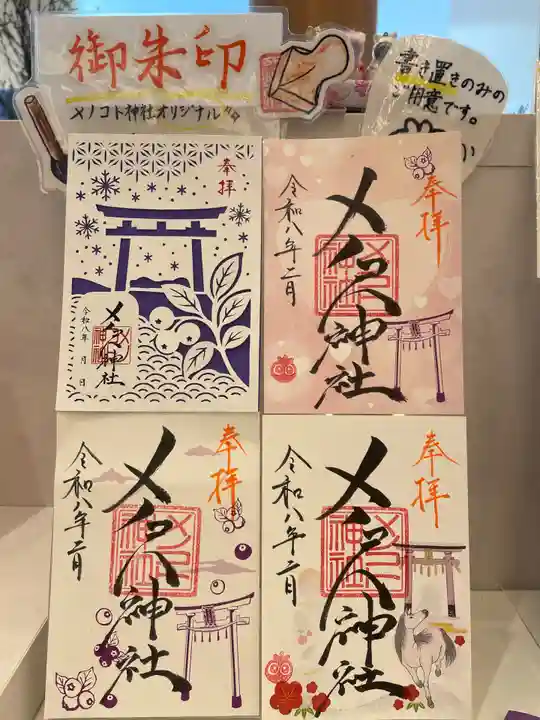 御朱印
メノコト神社オリジナル
書き置きのみの
ご用意です。
奉拝
メノコト神社
令和八年 月 日
奉拝
メノコト神社
令和八年二月
奉拝
メノコト神社
令和八年二月
奉拝
メノコト神社
令和八年二月